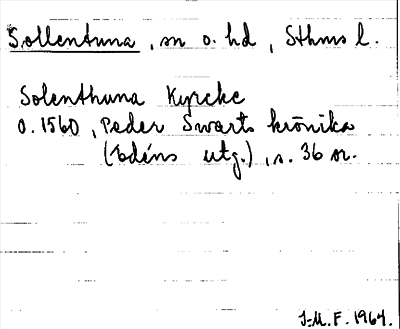 Sollentuna, sn o. hd, Sthms l.
Solenthuna Kyrcke
o. 1560, Peder Swarts krönika
(Edéns utg.), s. 36 m.
J-M. F. 1964.